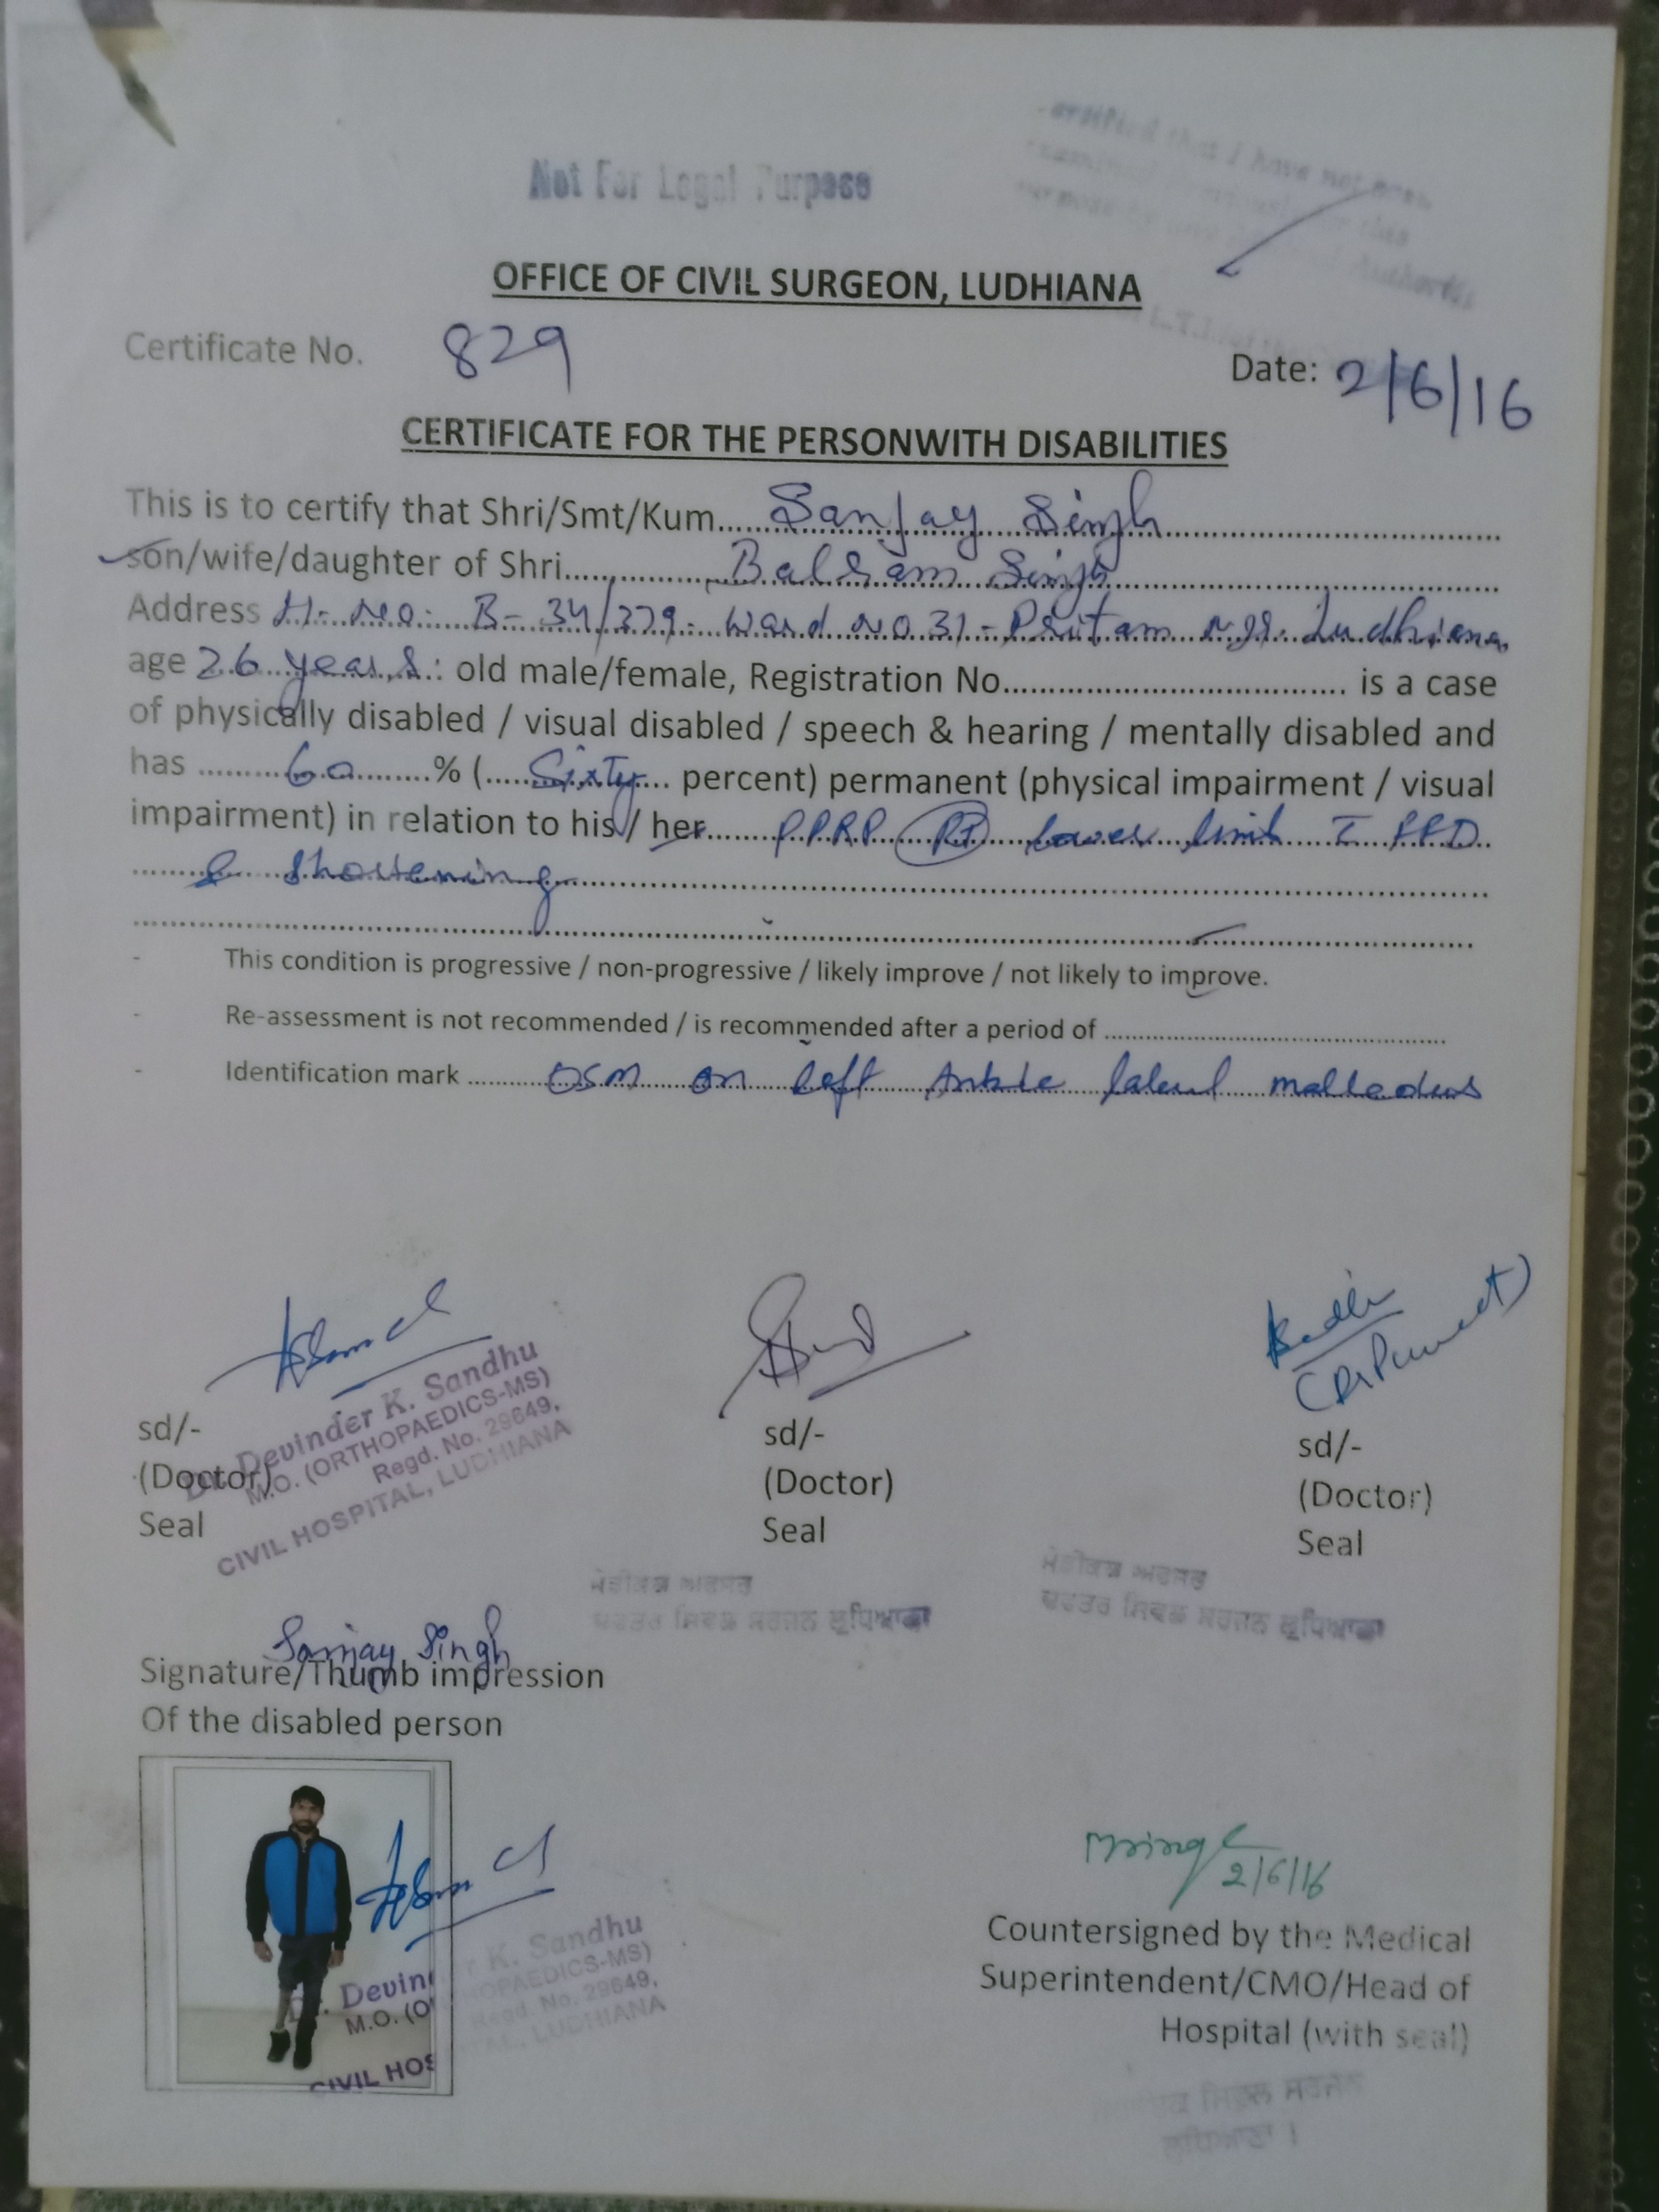 Not For Legal Purpose
that I have not
OFFICE OF CIVIL SURGEON, LUDHIANA
Certificate No. 829
Date: 2/6/16
CERTIFICATE FOR THE PERSONWITH DISABILITIES
This is to certify that Shri/Smt/Kum...... Sanjay Singh ..............................
son/wife/daughter of Shri.................. Balram Singh ..............................
Address H. No. B-34/379- Ward No 31- Pritam Ngr. Ludhiana
age 26 years.: old male/female, Registration No.................................... is a case
of physically disabled / visual disabled / speech & hearing / mentally disabled and
has ..........60........% (......Sixty.... percent) permanent (physical impairment / visual
impairment) in relation to his / her........ P.P.R.P. Rt lower limb c FFD
& Shortening
- This condition is progressive / non-progressive / likely improve / not likely to improve.
- Re-assessment is not recommended / is recommended after a period of ..................................................
- Identification mark ............ OSM on left Ankle malleolus
sd/-
(Doctor)
Seal
Dr. Devinder K. Sandhu
M.O. (ORTHOPAEDICS-MS)
Regd. No. 29649,
CIVIL HOSPITAL, LUDHIANA
sd/-
(Doctor)
Seal
ਮੈਡੀਕਲ ਅਫਸਰ
ਦਫਤਰ ਸਿਵਲ ਸਰਜਨ ਲੁਧਿਆਣਾ
(Dr Puneet)
sd/-
(Doctor)
Seal
ਮੈਡੀਕਲ ਅਫਸਰ
ਦਫਤਰ ਸਿਵਲ ਸਰਜਨ ਲੁਧਿਆਣਾ
Sanjay Singh
Signature/Thumb impression
Of the disabled person
Dr. Devinder K. Sandhu
M.O. (ORTHOPAEDICS-MS)
Regd. No. 29649,
CIVIL HOSPITAL, LUDHIANA
2/6/16
Countersigned by the Medical
Superintendent/CMO/Head of
Hospital (with seal)
ਸਿਵਲ ਸਰਜਨ
ਲੁਧਿਆਣਾ ।